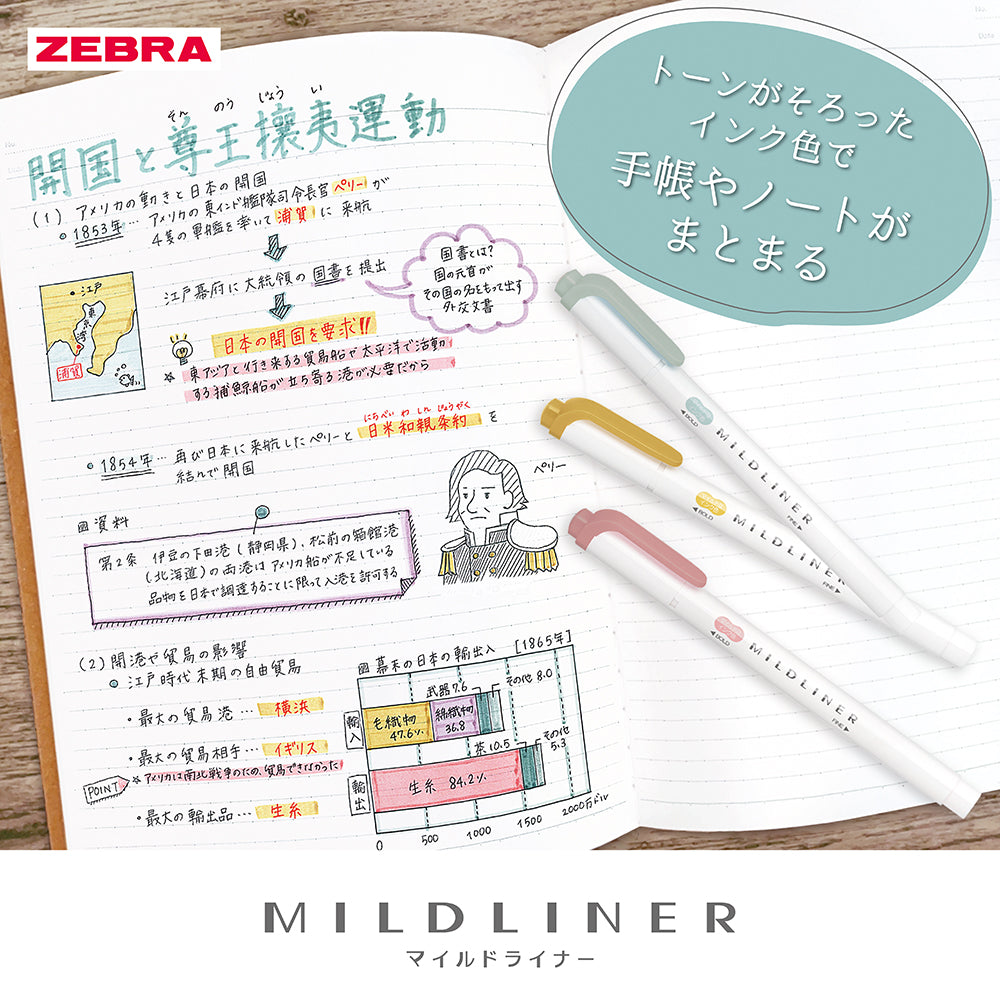 ZEBRA
トーンがそろった
インク色で
手帳やノートが
まとまる
そん のう じょう い
開国と尊王攘夷運動
(1) アメリカの動きと日本の開国
1853年… アメリカの東インド艦隊司令長官 ペリー が
4隻の軍艦を率いて 浦賀 に 来航
江戸幕府に大統領の国書を提出
国書とは?
国の元首が
その国の名をもって出す
外交文書
江戸
東京湾
浦賀
日本の開国を要求!!
☆ 東アジアと行き来する貿易船や太平洋で活動
する捕鯨船が立ち寄る港が必要だから
にちべい わ しん じょうやく
1854年… 再び日本に来航したペリーと 日米和親条約 を
結んで開国
ペリー
資料
第2条 伊豆の下田港(静岡県)、松前の箱館港
(北海道)の両港はアメリカ船が不足している
品物を日本で調達することに限って入港を許可する
(2) 開港や貿易の影響
江戸時代末期の自由貿易
・最大の貿易港… 横浜
・最大の貿易相手… イギリス
POINT
☆アメリカは南北戦争のため、貿易できなかった
・最大の輸出品… 生糸
図 幕末の日本の輸出入 [1865年]
武器7.6
その他 8.0
輸入
毛織物
47.6%
綿織物
36.8
茶10.5
その他
5.3
輸出
生糸 84.2%
0 500 1000 1500 2000万ドル
BOLD MILDLINER FINE
BOLD MILDLINER FINE
BOLD MILDLINER FINE
MILDLINER
マイルドライナー